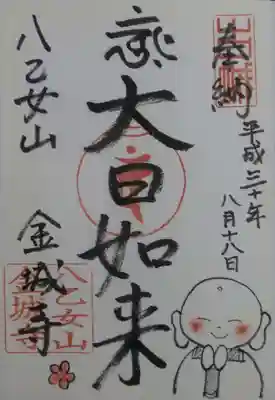 奉納
平成三十年
八月十八日
大日如来
八乙女山
金城寺
八乙女山
金城寺